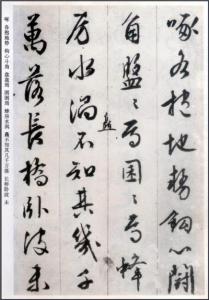 啄各抱地勢鈎心鬪
角盤〻焉囷〻焉蜂
房水渦矗不知其幾千
萬落長橋卧波未
啄 各抱地势 钩心斗角 盘盘焉 囷囷焉 蜂房水涡 矗不知其几千万落 长桥卧波 未